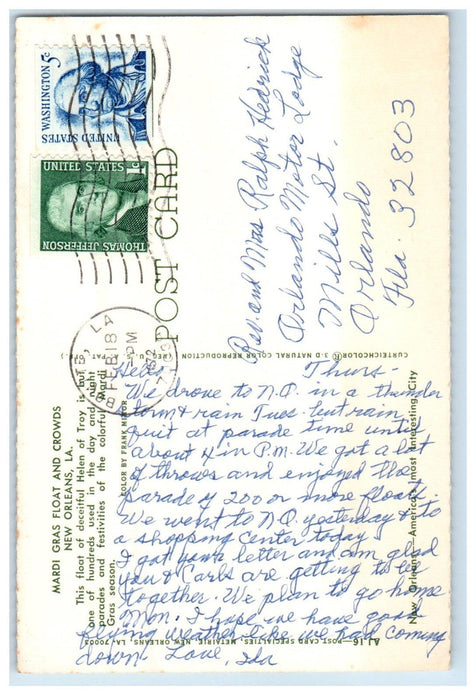 WASHINGTON 5c
UNITED STATES
UNITED STATES 1c
THOMAS JEFFERSON
LA
FEB 18
PM
1972
POST CARD
Rev. and Mrs Ralph Hedrick
Orlando Motor Lodge
Mills St.
Orlando
Fla. 32803
CURTEICHCOLOR® 3-D NATURAL COLOR REPRODUCTION (REG. U.S.A. PAT. OFF.)
MARDI GRAS FLOAT AND CROWDS
NEW ORLEANS, LA.
This float of deceitful Helen of Troy is but
one of hundreds used in the day and night
parades and festivities of the colorful Mardi
Gras season.
COLOR BY FRANK
New Orleans — America's most Interesting City
POST CARD SPECIALTIES, METAIRIE, NEW ORLEANS, LA. 70003
Hello, Thurs-
We drove to N.O. in a thunder
storm & rain Tues. but rain
quit at parade time until
about 4 in P.M. We got a lot
of throws and enjoyed the
parade of 200 or more floats.
We went to N.O. yesterday & to
a shopping center today.
I got your letter and am glad
you & Carls are getting to be
together. We plan to go home
Mon. I hope we have good
flying weather like we had coming
down. Love, Ida